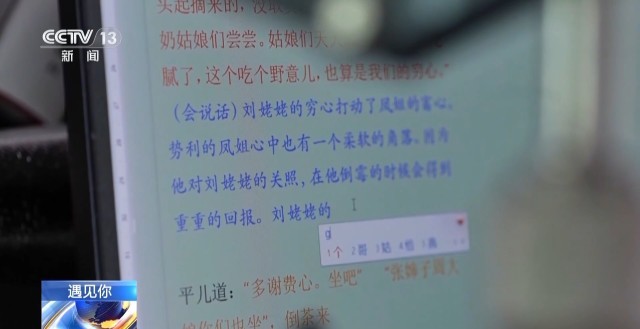 CCTV 13
新闻
头起摘来的，没敢
奶姑娘们尝尝。姑娘们天
腻了，这个吃个野意儿，也算是我们的穷心。”
（会说话）刘姥姥的穷心打动了凤姐的富心。
势利的凤姐心中也有一个柔软的角落。因为
他对刘姥姥的关照，在他倒霉的时候会得到
重重的回报。刘姥姥的
g
1个 2哥 3姑 4给 5高
平儿道：“多谢费心。坐吧” “张婶子周大
娘你们也坐”，倒茶来
遇见你